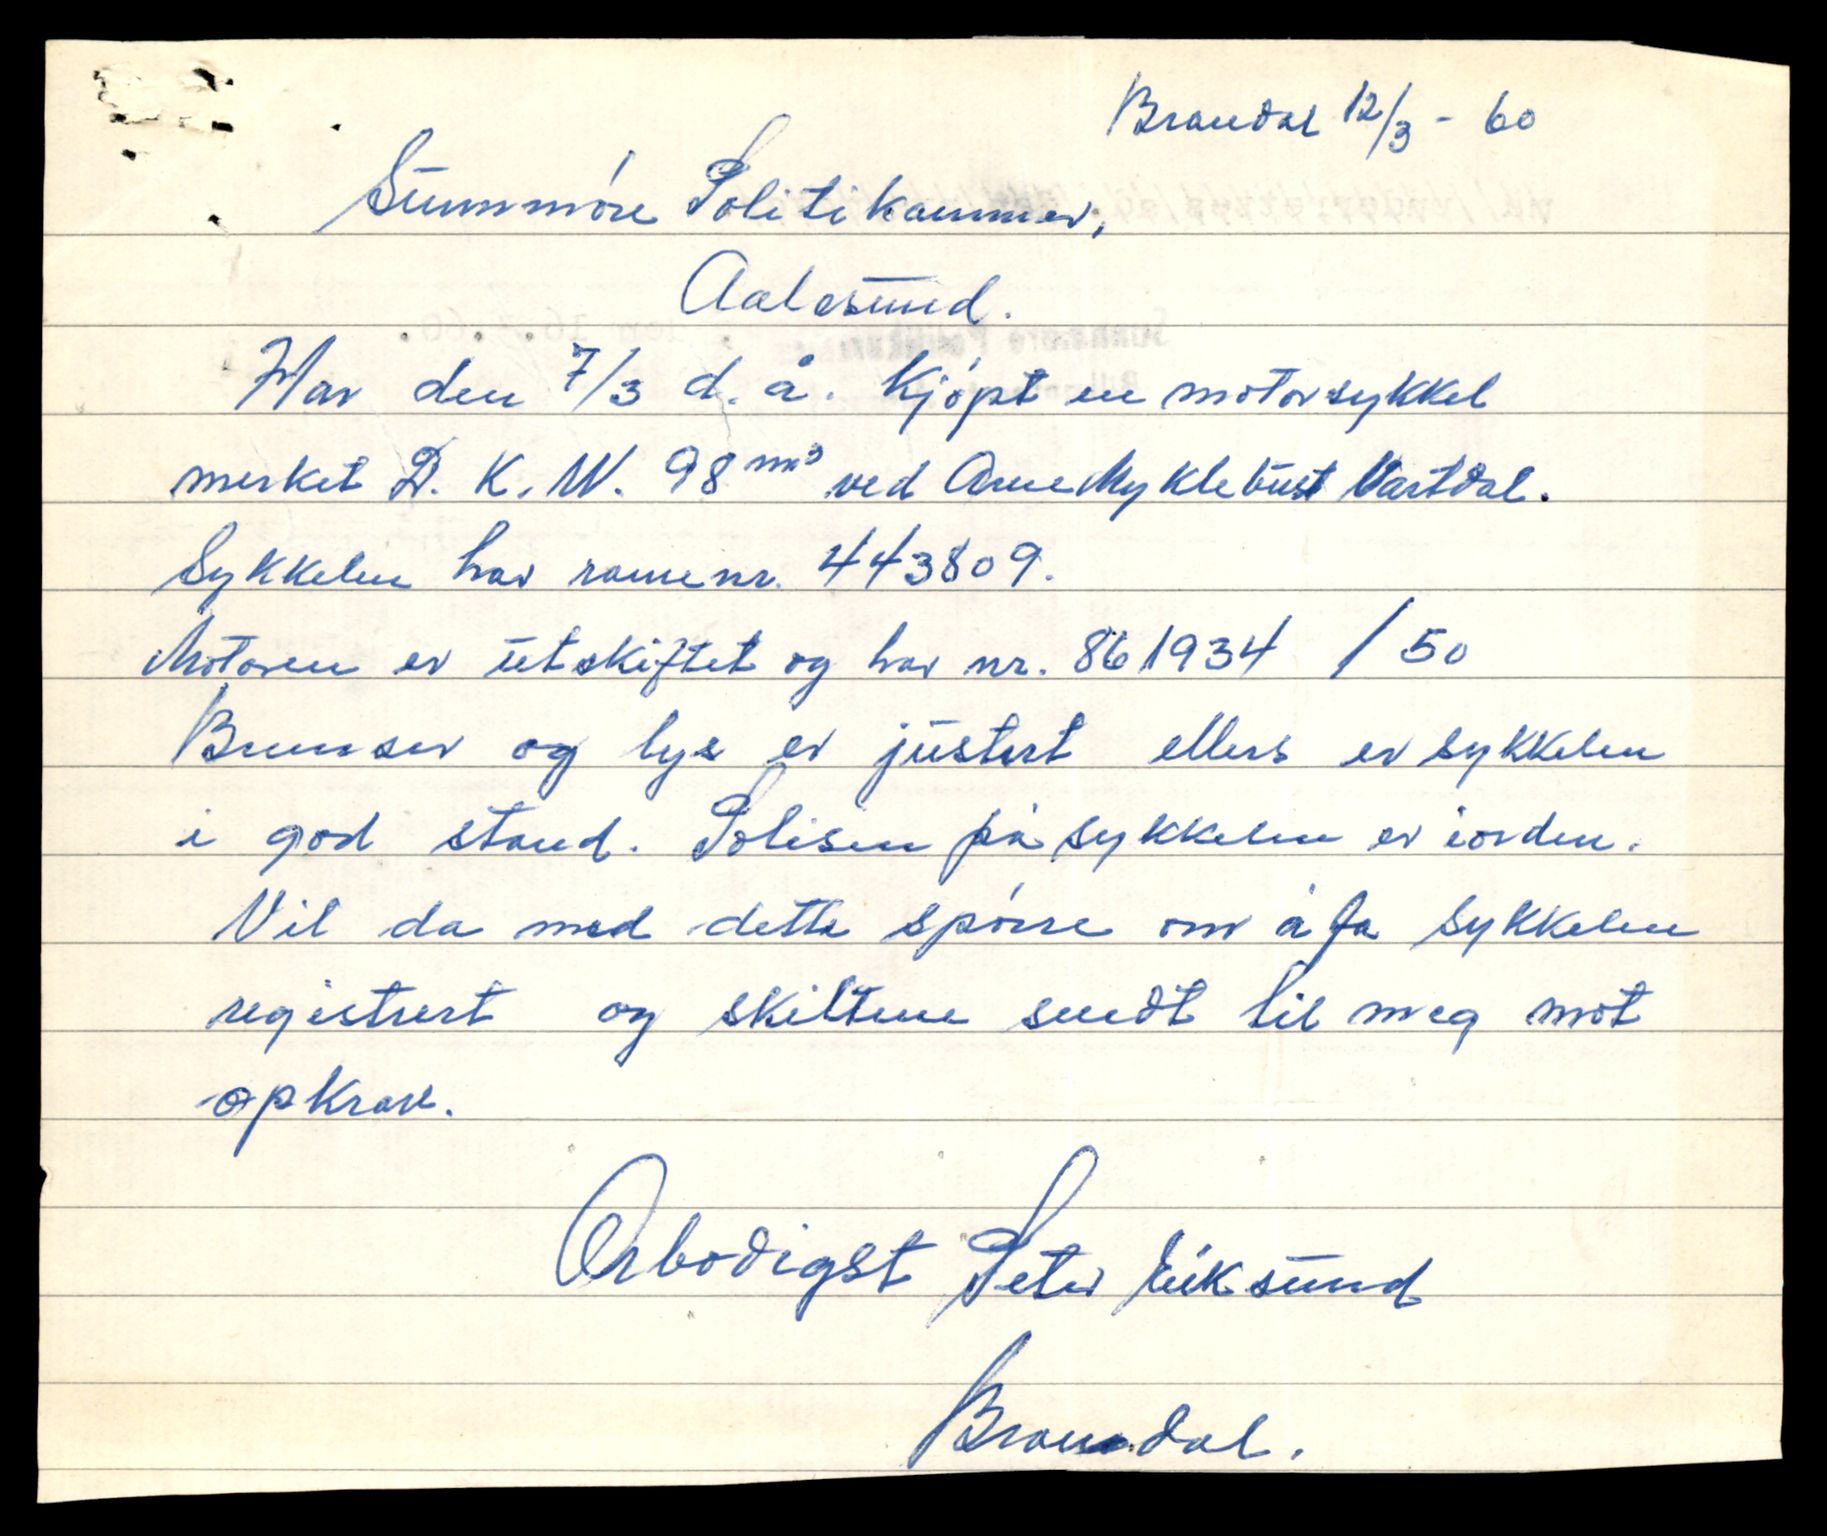 Brandal 12/3 - 60
Sunnmöre Politikammer,
Aalesund.
Har den 7/3 d. å. kjöpt en motorsykkel
merket D. K. W. 98 m³ ved Arne Myklebust Vartdal.
Sykkelen har rame nr. 443809.
Motoren er utskiftet og har nr. 861934 / 50
Bremser og lys er justert ellers er sykkelen
i god stand. Polisen på sykkelen er iorden.
Vil da med dette spörre om å fa sykkelen
registrert og skiltene sendt til meg mot
opkrav.
Ærbodigst Peter Eiksund
Brandal.